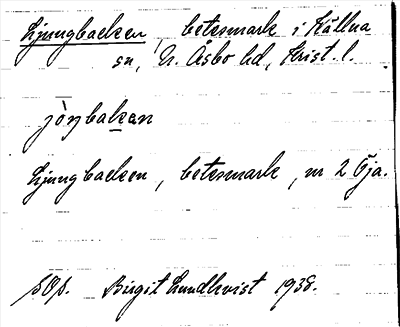 Ljungbacken, betesmark i Källna
sn, N. Åsbo hd, Krist. l.
jòŋbakan
Ljungbacken, betesmark, nr 2 Öja.
Birgit Lundkvist 1938.